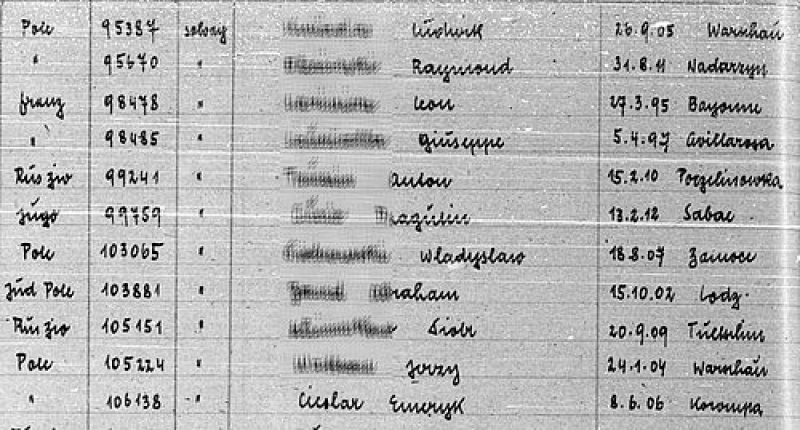 Pole 95387 solvay Ludwik 26.9.05 Warschau
" 95670 " Raymond 31.8.11 Nadarzyn
franz 98478 " Leon 27.3.95 Bayonne
" 98485 " Giuseppe 5.4.97 Avillarosa
Rus ziv 99241 " Anton 15.2.10
Jugo 99759 " 13.2.12 Sabac
Pole 103065 " Wladyslaw 18.8.07 Zamosc
Jüd Pole 103881 " 15.10.02 Lodz
Rus ziv 105151 " Piotr 20.9.09
Pole 105224 " Jerzy 24.1.04 Warschau
" 106138 " Cieslar Emeryk 8.6.06 Korompa